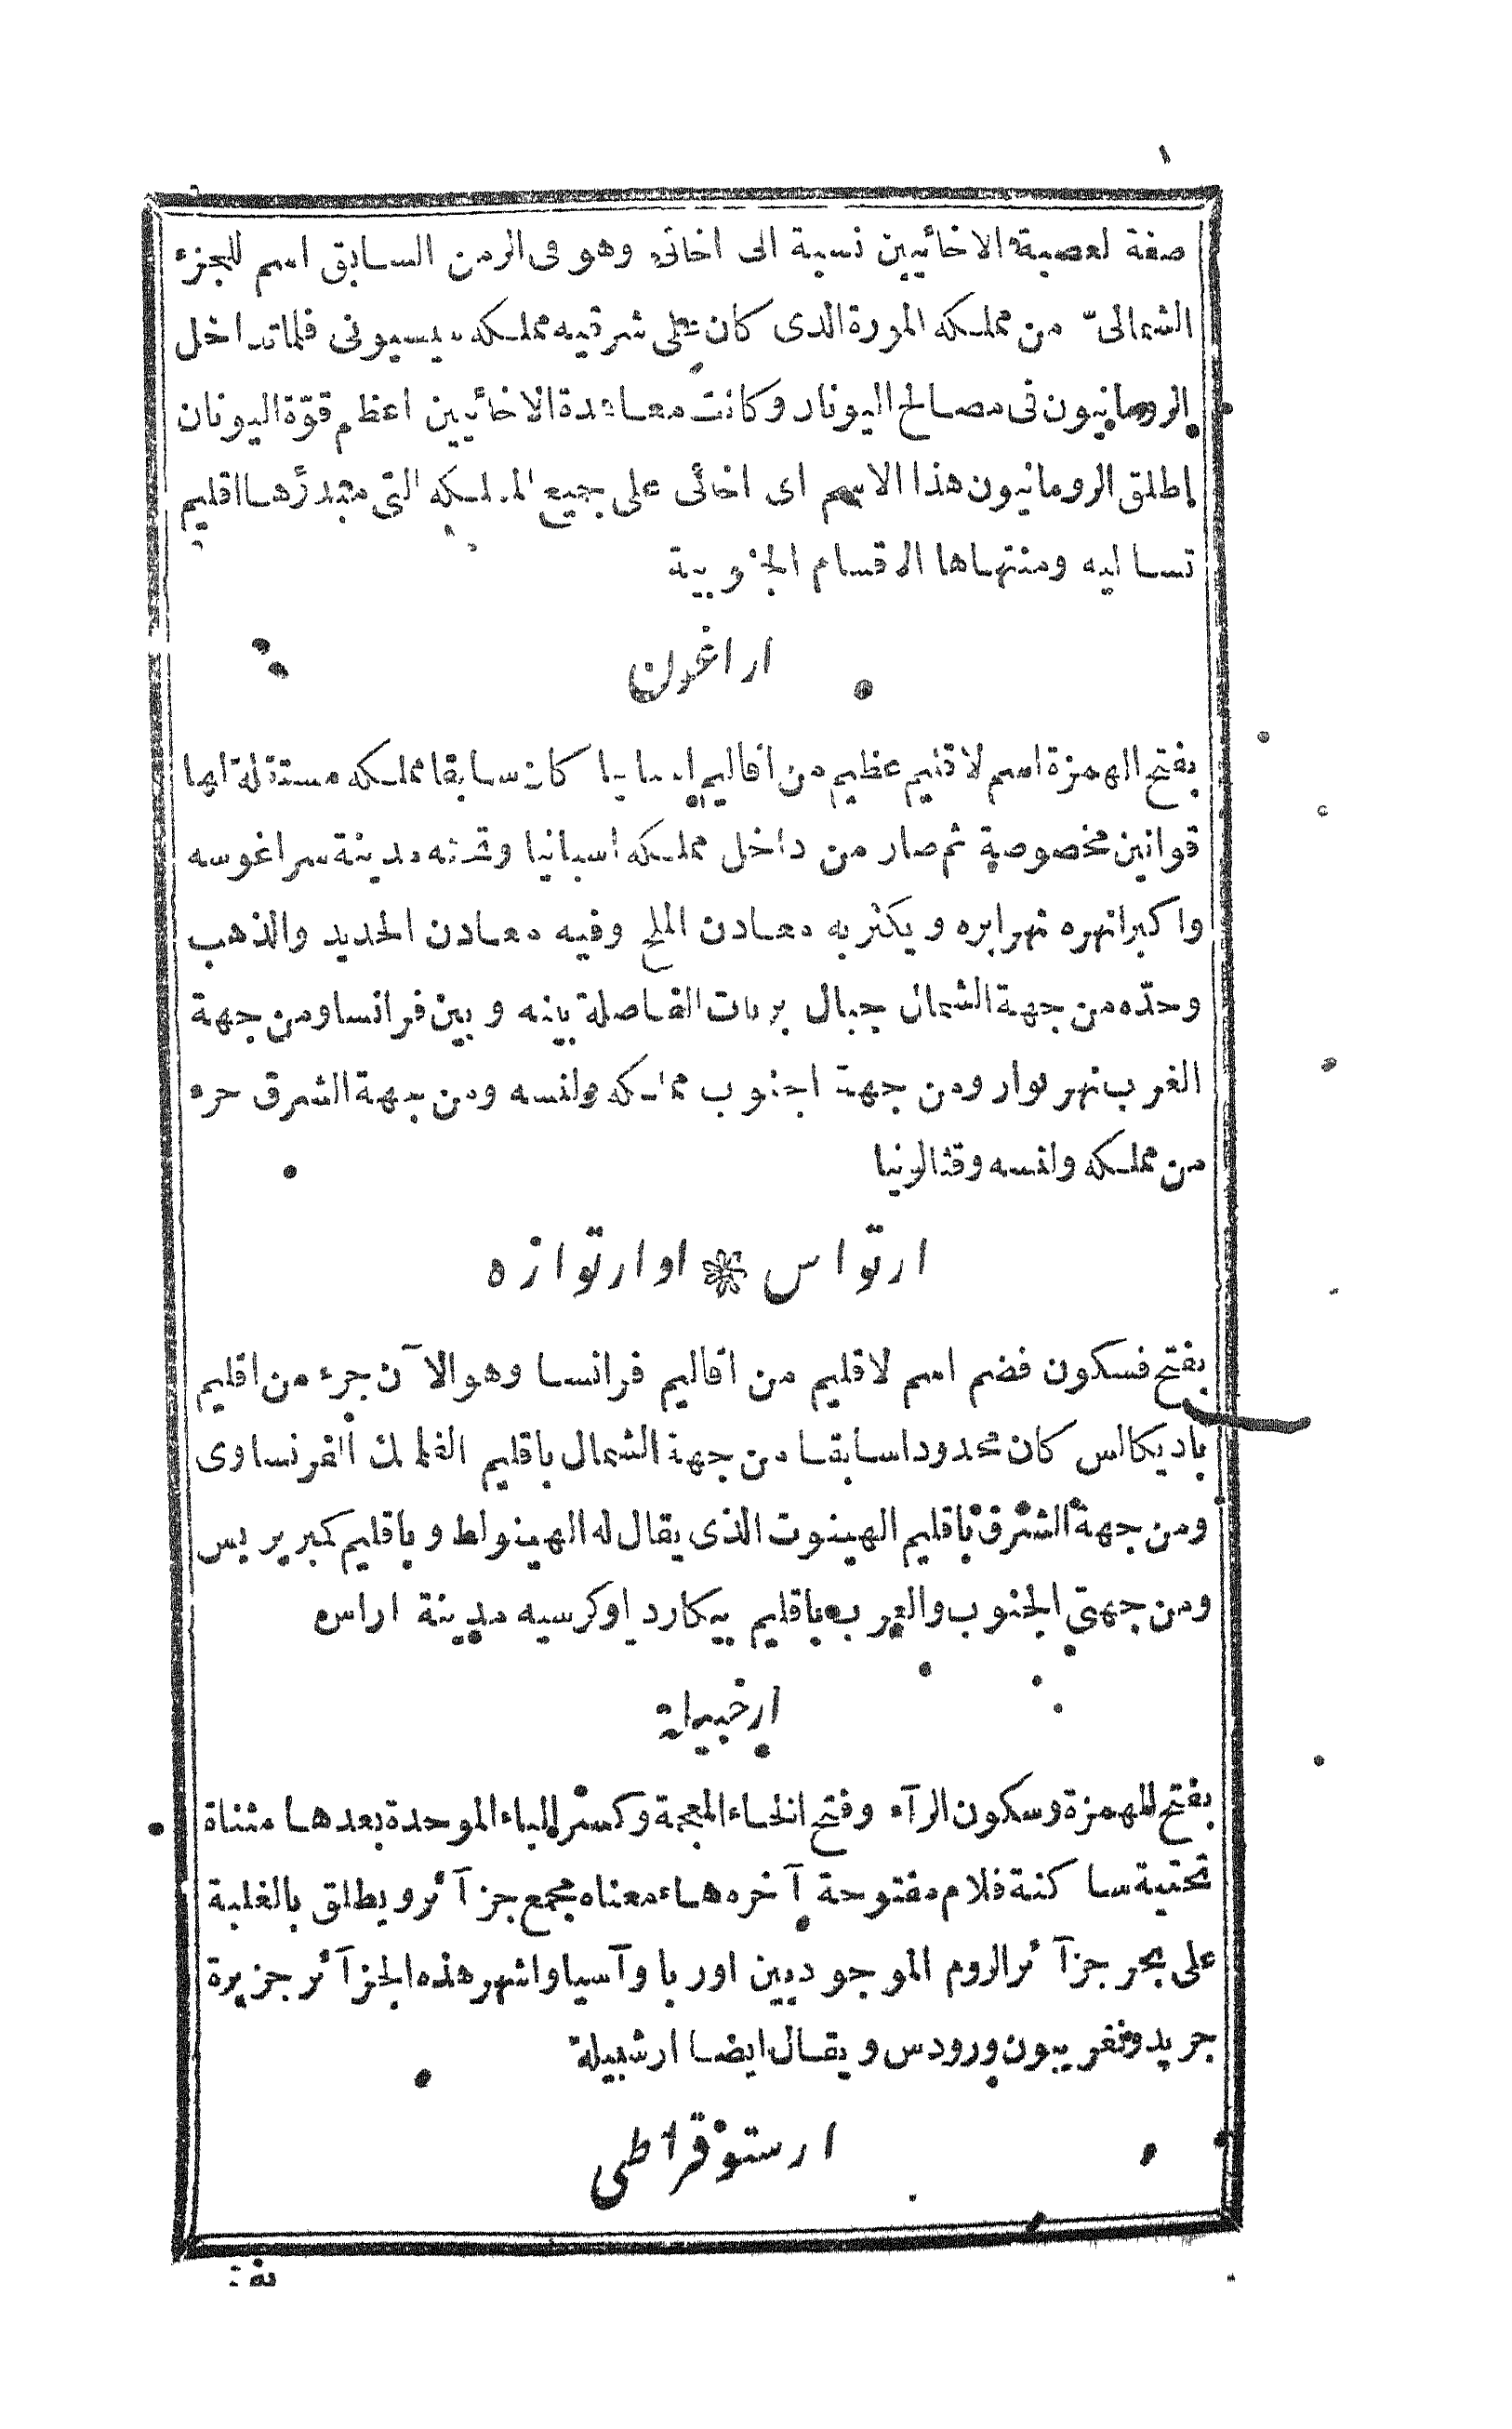 صفة لعصبة الاخائيين نسبة الى اخائى وهو فى الزمن السابق اسم للجزء
الشمالىّ من مملكه المورة الذى كان على شرقيه مملكه سيسيونى فلما تداخل
الرومانيون فى مصالح اليونان وكانت معاهدة الاخائيين اعظم قوّة اليونان
اطلق الرومانيون هذا الاسم اى اخائى على جميع المملكه التى مبتدؤها اقليم
تساليه ومنتهاها الاقسام الجنوبية
اراغون
بفتح الهمزة اسم لاقليم عظيم من اقاليم اسبانيا كان سابقا مملكه مستقلة لها
قوانين مخصوصة ثم صار من داخل مملكه اسبانيا وتخته مدينة سراغوسه
واكبر انهره نهر ابره ويكثر به معادن الملح وفيه معادن الحديد والذهب
وحدّه من جهة الشمال جبال برنات الفاصلة بينه وبين فرانسا ومن جهة
الغرب نهر نوار ومن جهة الجنوب مملكه ولنسه ومن جهة الشرق جزء
من مملكه ولنسه وقتالونيا
ارتواس ❀ او ارتوازه
بفتح فسكون فضم اسم لاقليم من اقاليم فرانسا وهو الآن جزء من اقليم
باديكالس كان محدودا سابقا من جهة الشمال باقليم الفلمنك الفرنساوى
ومن جهة الشرق باقليم الهينوت الذى يقال له الهينولط وباقليم كمبريريس
ومن جهتى الجنوب والغرب باقليم بيكارديا وكرسيه مدينة اراس
ارخبيلة
بفتح الهمزة وسكون الرآء وفتح الخاء المعجمة وكسر الباء الموحدة بعدها مثناة
تحتية ساكنة فلام مفتوحة آخره هاء معناه مجمع جزآئر ويطلق بالغلبة
على بحر جزآئر الروم الموجود بين اوربا وآسيا واشهر هذه الجزآئر جزيرة
جريد ونغريبون ورودس ويقال ايضا ارشبيلة
ارستوقراطى